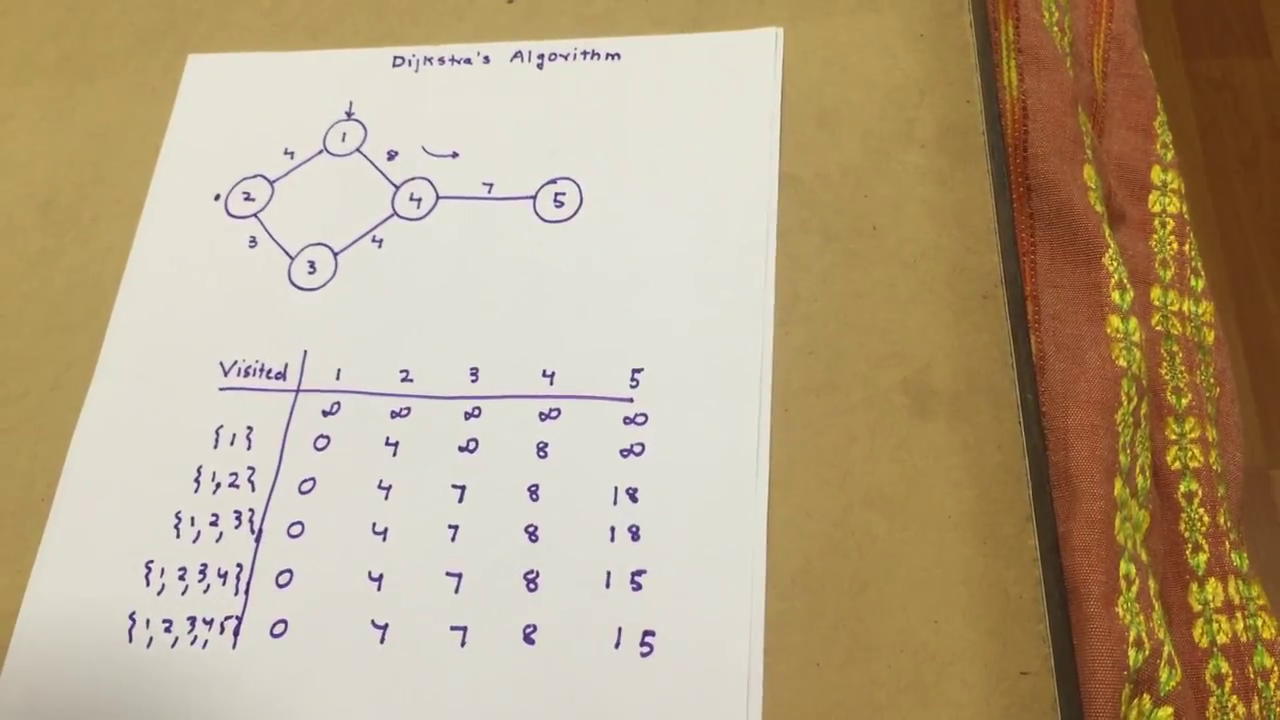 Dijkstra's Algorithm
1
4 8
2 4 7 5
3 4
3
Visited 1 2 3 4 5
∞ ∞ ∞ ∞ ∞
{1} 0 4 ∞ 8 ∞
{1,2} 0 4 7 8 18
{1,2,3} 0 4 7 8 18
{1,2,3,4} 0 4 7 8 15
{1,2,3,4,5} 0 4 7 8 15